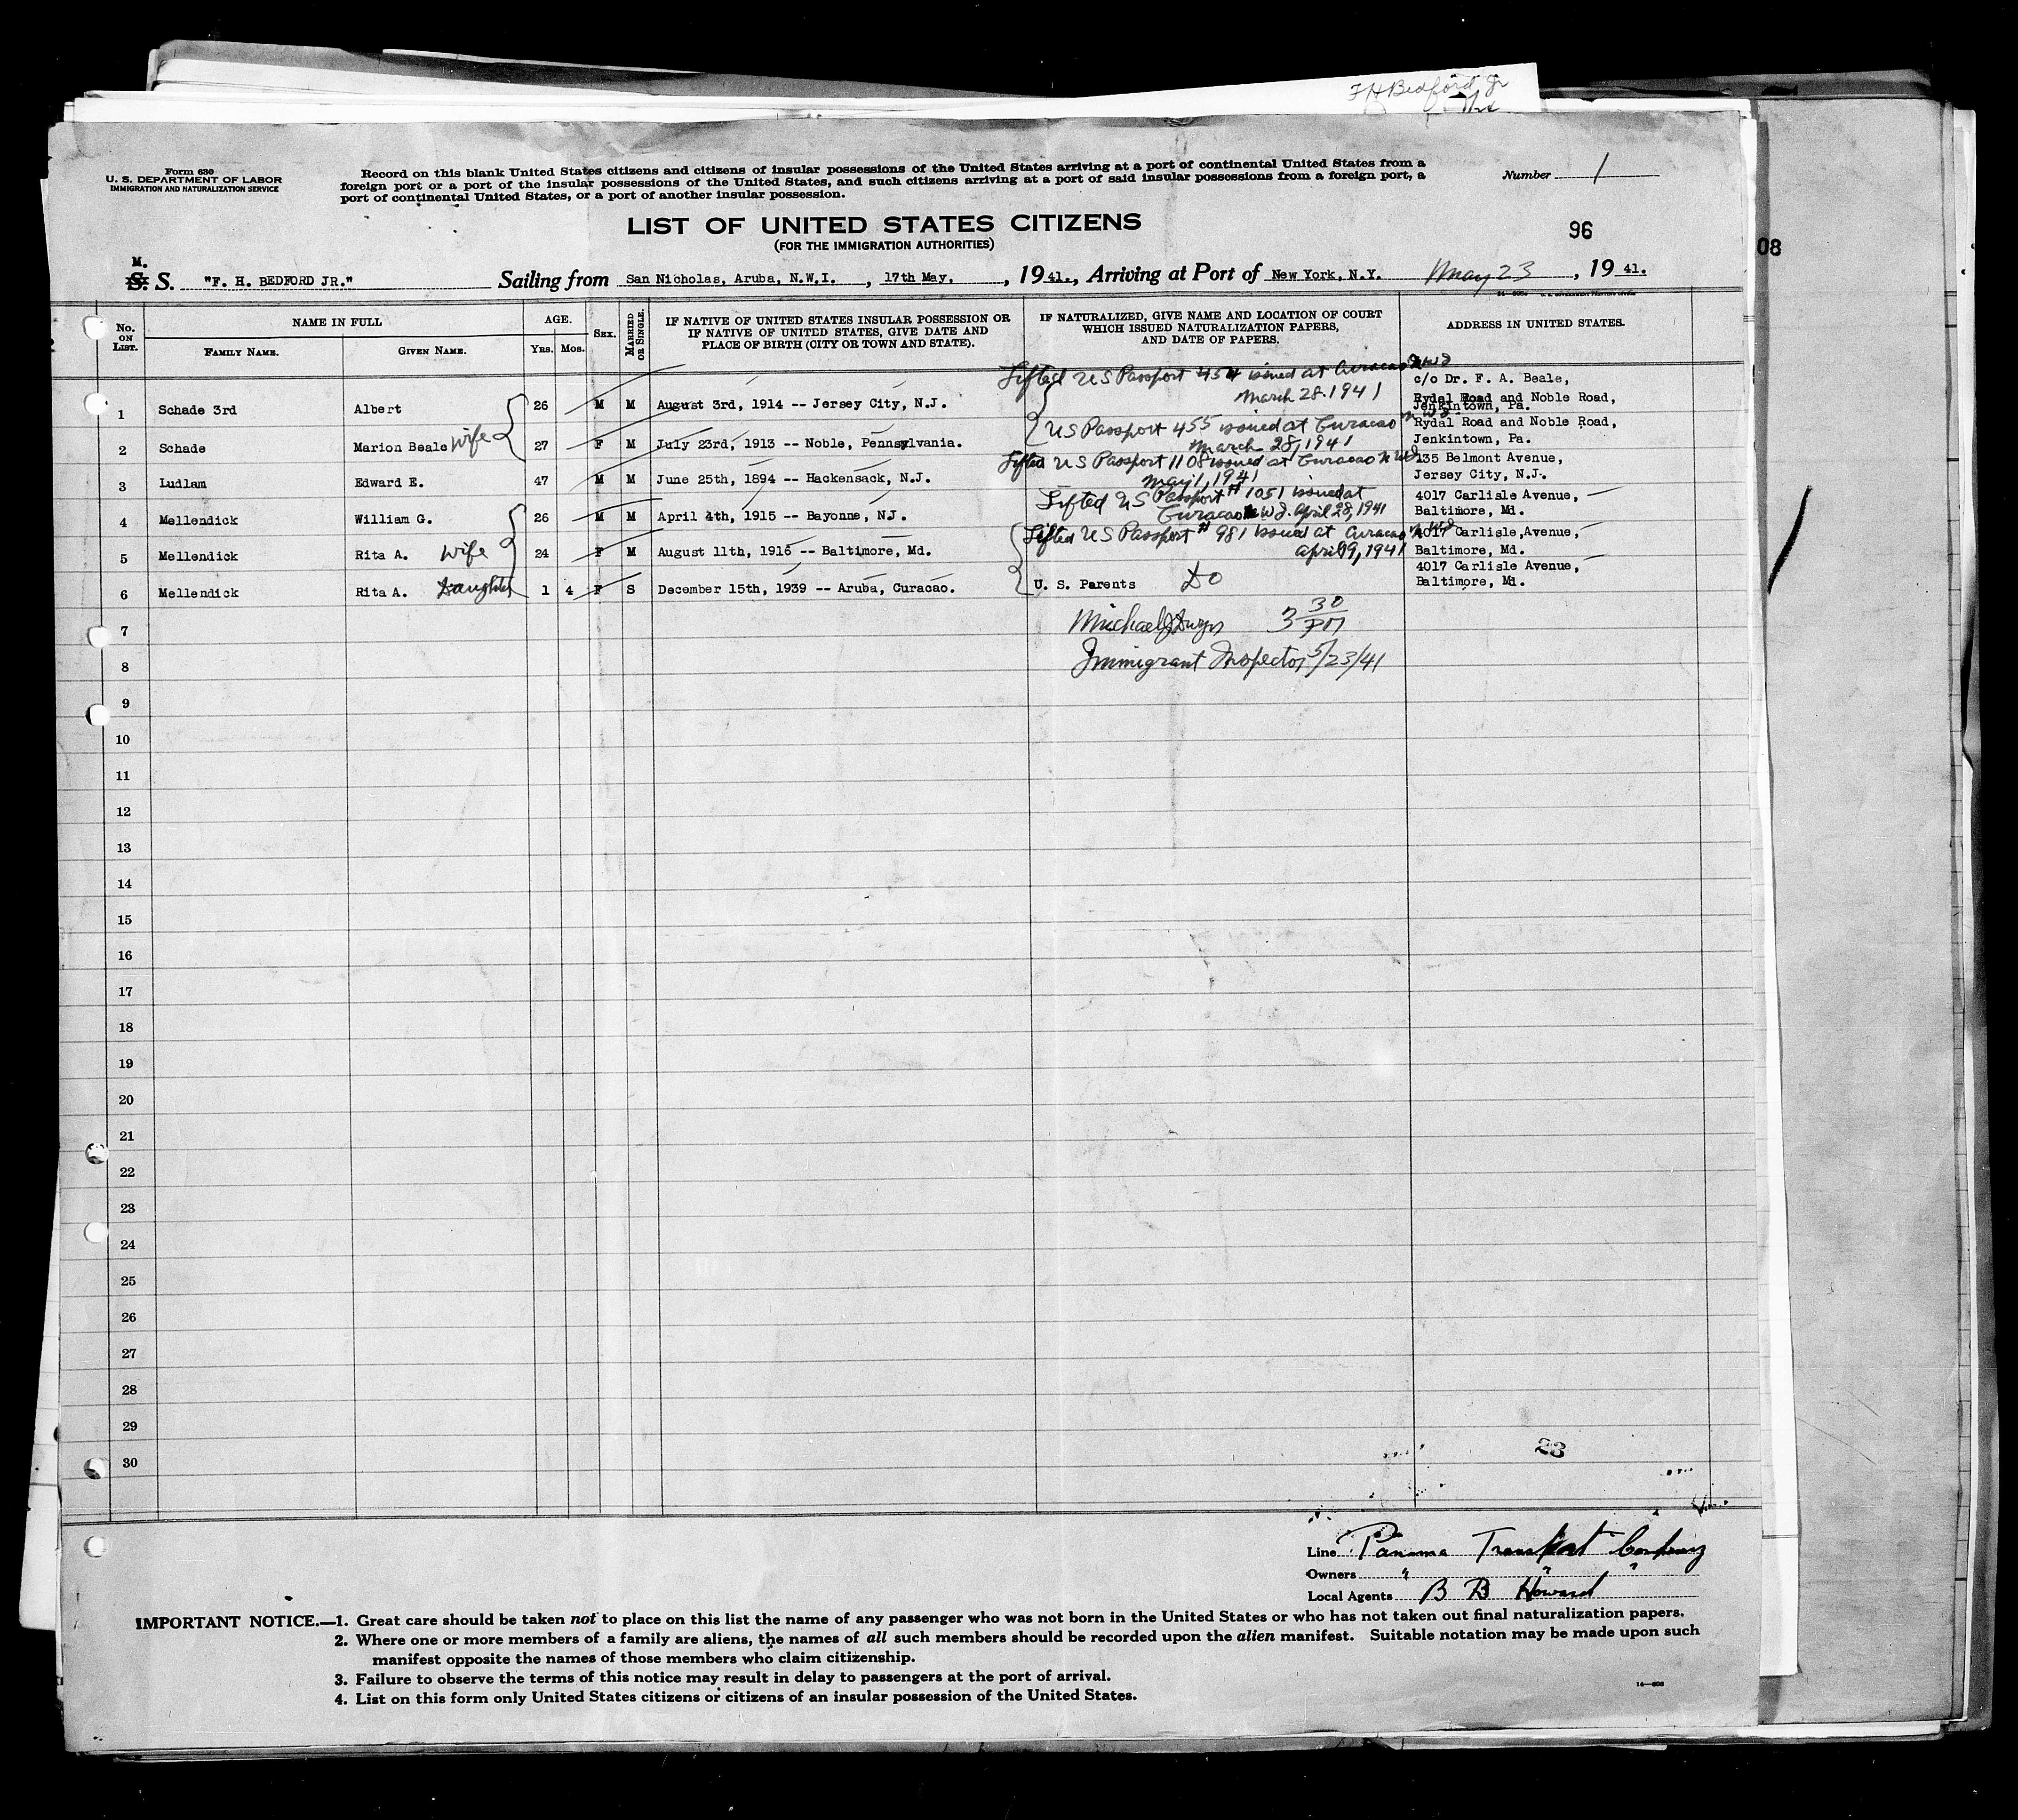 F H Bedford Jr
Form 630
U. S. DEPARTMENT OF LABOR
IMMIGRATION AND NATURALIZATION SERVICE
Record on this blank United States citizens and citizens of insular possessions of the United States arriving at a port of continental United States from a
foreign port or a port of the insular possessions of the United States, and such citizens arriving at a port of said insular possessions from a foreign port, a
port of continental United States, or a port of another insular possession.
Number 1
LIST OF UNITED STATES CITIZENS
(FOR THE IMMIGRATION AUTHORITIES)
96
08
M.
S. S. "F. H. BEDFORD JR." Sailing from San Nicholas, Aruba, N.W.I. , 17th May. , 19 41., Arriving at Port of New York, N.Y. May 23 , 19 41.
No. ON LIST.
NAME IN FULL
FAMILY NAME.
GIVEN NAME.
AGE.
YRS. MOS.
SEX.
MARRIED OR SINGLE.
IF NATIVE OF UNITED STATES INSULAR POSSESSION OR
IF NATIVE OF UNITED STATES, GIVE DATE AND
PLACE OF BIRTH (CITY OR TOWN AND STATE).
IF NATURALIZED, GIVE NAME AND LOCATION OF COURT
WHICH ISSUED NATURALIZATION PAPERS,
AND DATE OF PAPERS.
ADDRESS IN UNITED STATES.
Lifted US Passport 454 issued at Curacao NWI
March 28. 1941
c/o Dr. F. A. Beale,
Rydal Road and Noble Road,
Jenkintown, Pa.
1 Schade 3rd Albert 26 M M August 3rd, 1914 -- Jersey City, N.J.
US Passport 455 issued at Curacao NWI
March 28, 1941
Rydal Road and Noble Road,
Jenkintown, Pa.
2 Schade Marion Beale wife 27 F M July 23rd, 1913 -- Noble, Pennsylvania.
Lifted US Passport 1108 issued at Curacao NWI
May 1, 1941
235 Belmont Avenue,
Jersey City, N.J.
3 Ludlam Edward E. 47 M M June 25th, 1894 -- Hackensack, N.J.
Lifted US Passport # 1051 issued at
Curacao NWI. April 28, 1941
4017 Carlisle Avenue,
Baltimore, Md.
4 Mellendick William G. 26 M M April 4th, 1915 -- Bayonne, N.J.
Lifted US Passport # 981 issued at Curacao NWI
April 19, 1941
4017 Carlisle Avenue,
Baltimore, Md.
5 Mellendick Rita A. wife 24 F M August 11th, 1916 -- Baltimore, Md.
4017 Carlisle Avenue,
Baltimore, Md.
6 Mellendick Rita A. Daughter 1 4 F S December 15th, 1939 -- Aruba, Curacao. U. S. Parents Do
7 Michael J Dwyer 3 30 PM
8 Immigrant Inspector 5/23/41
9
10
11
12
13
14
15
16
17
18
19
20
21
22
23
24
25
26
27
28
29
30
23
Line Panama Transport Company
Owners " " "
Local Agents B B Howard
IMPORTANT NOTICE.—1. Great care should be taken not to place on this list the name of any passenger who was not born in the United States or who has not taken out final naturalization papers.
2. Where one or more members of a family are aliens, the names of all such members should be recorded upon the alien manifest. Suitable notation may be made upon such
manifest opposite the names of those members who claim citizenship.
3. Failure to observe the terms of this notice may result in delay to passengers at the port of arrival.
4. List on this form only United States citizens or citizens of an insular possession of the United States.